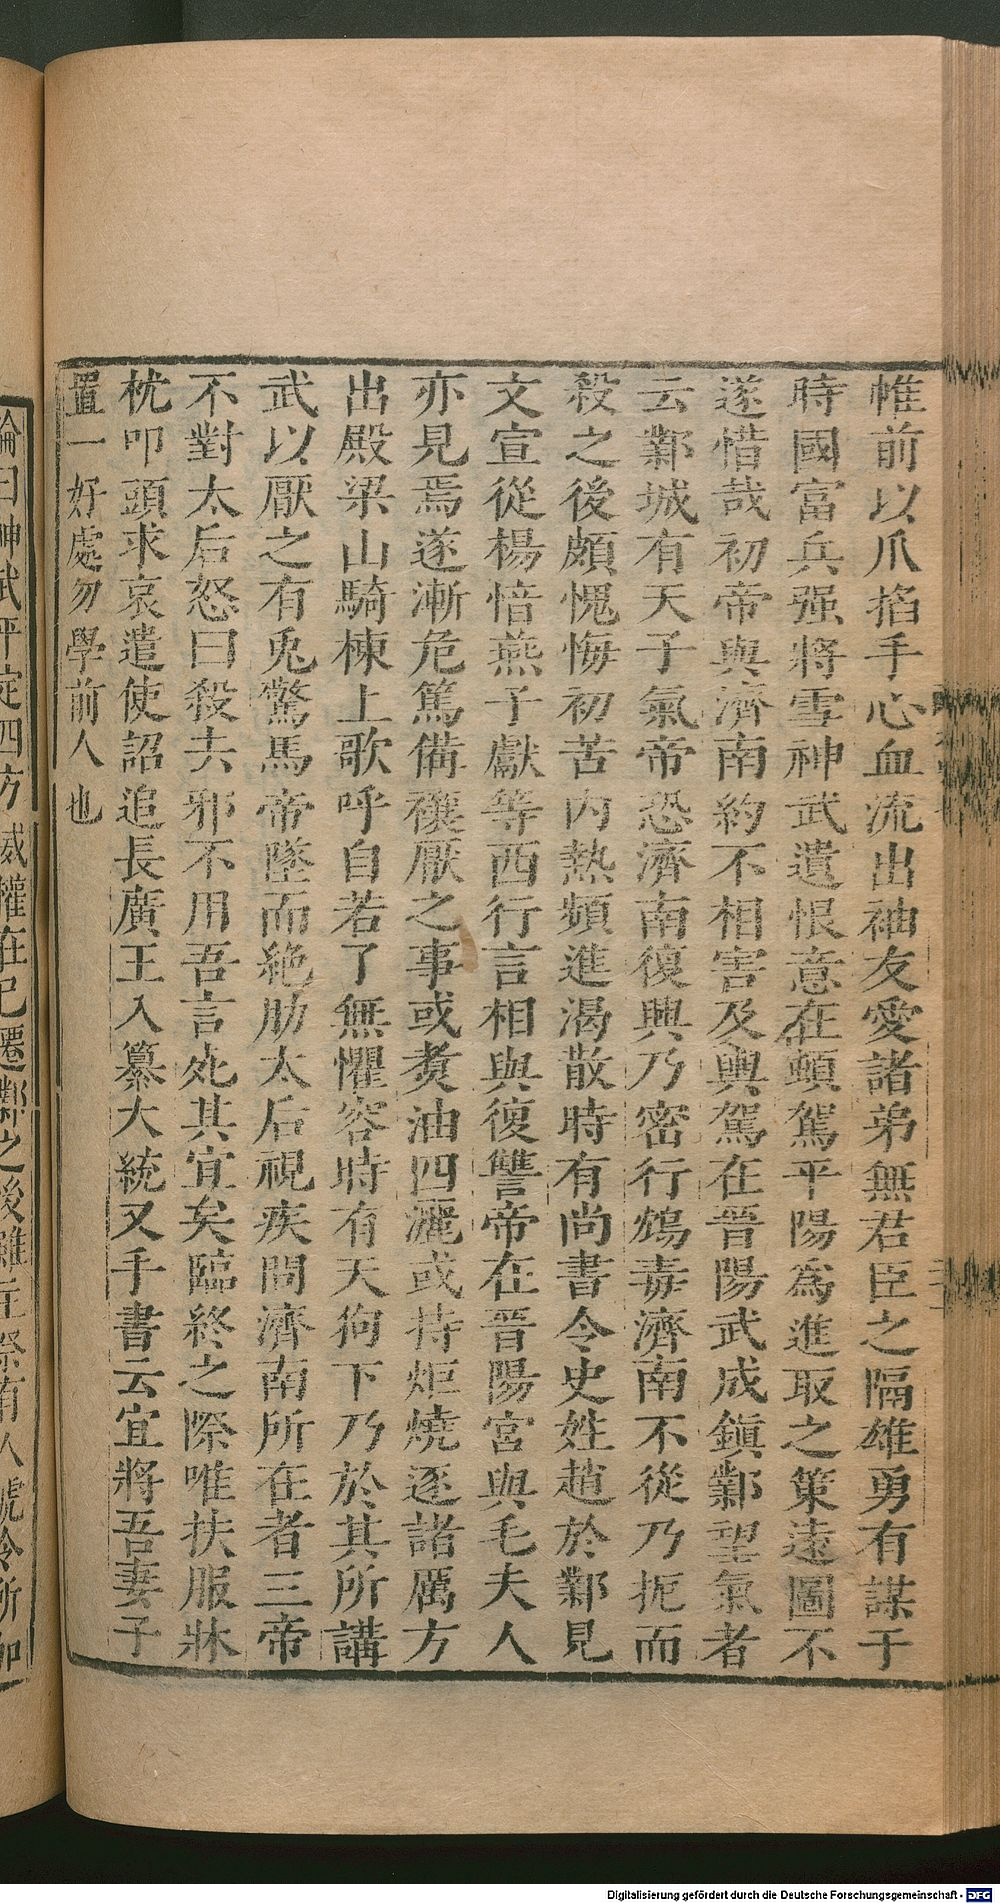 帷前以爪掐手心血流出袖友愛諸弟無君臣之隔雄勇有謀于
時國富兵强將雪神武遺恨意在頓駕平陽爲進取之策遠圖不
遂惜哉初帝與濟南約不相害及輿駕在晉陽武成鎭鄴望氣者
云鄴城有天子氣帝恐濟南復興乃密行鴆毒濟南不從乃扼而
殺之後頗愧悔初苦内熱頻進湯散時有尚書令史姓趙於鄴見
文宣從楊愔燕子獻等西行言相與復讐帝在晉陽宮與毛夫人
亦見焉遂漸危篤備禳厭之事或煑油四灑或持炬燒逐諸厲方
出殿梁山騎棟上歌呼自若了無懼容時有天狗下乃於其所講
武以厭之有兎驚馬帝墜而絶肋太后視疾問濟南所在者三帝
不對太后怒曰殺去邪不用吾言死其宜矣臨終之際唯扶服牀
枕叩頭求哀遣使詔追長廣王入纂大統又手書云宜將吾妻子
置一好處勿學前人也
論曰神武平定四方威權在已遷鄴之後雖主祭有人號令所加
Digitalisierung gefördert durch die Deutsche Forschungsgemeinschaft - DFG